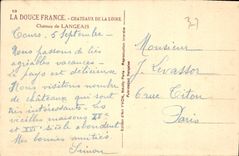 13
LA DOUCE FRANCE. - CHATEAUX DE LA LOIRE
Chateau de LANGEAIS
Tours. 5 Septembre
Nous passons de très
agréables vacances.
Le pays est délicieux
Nous visitons nombre
de châteaux qui sont
très intéressants. Les
vieilles maisons XVe
et XVIe siècle abondent
Mes bonnes amitiés
Simon
Monsieur
J. Levassor
6 rue Titon
Paris